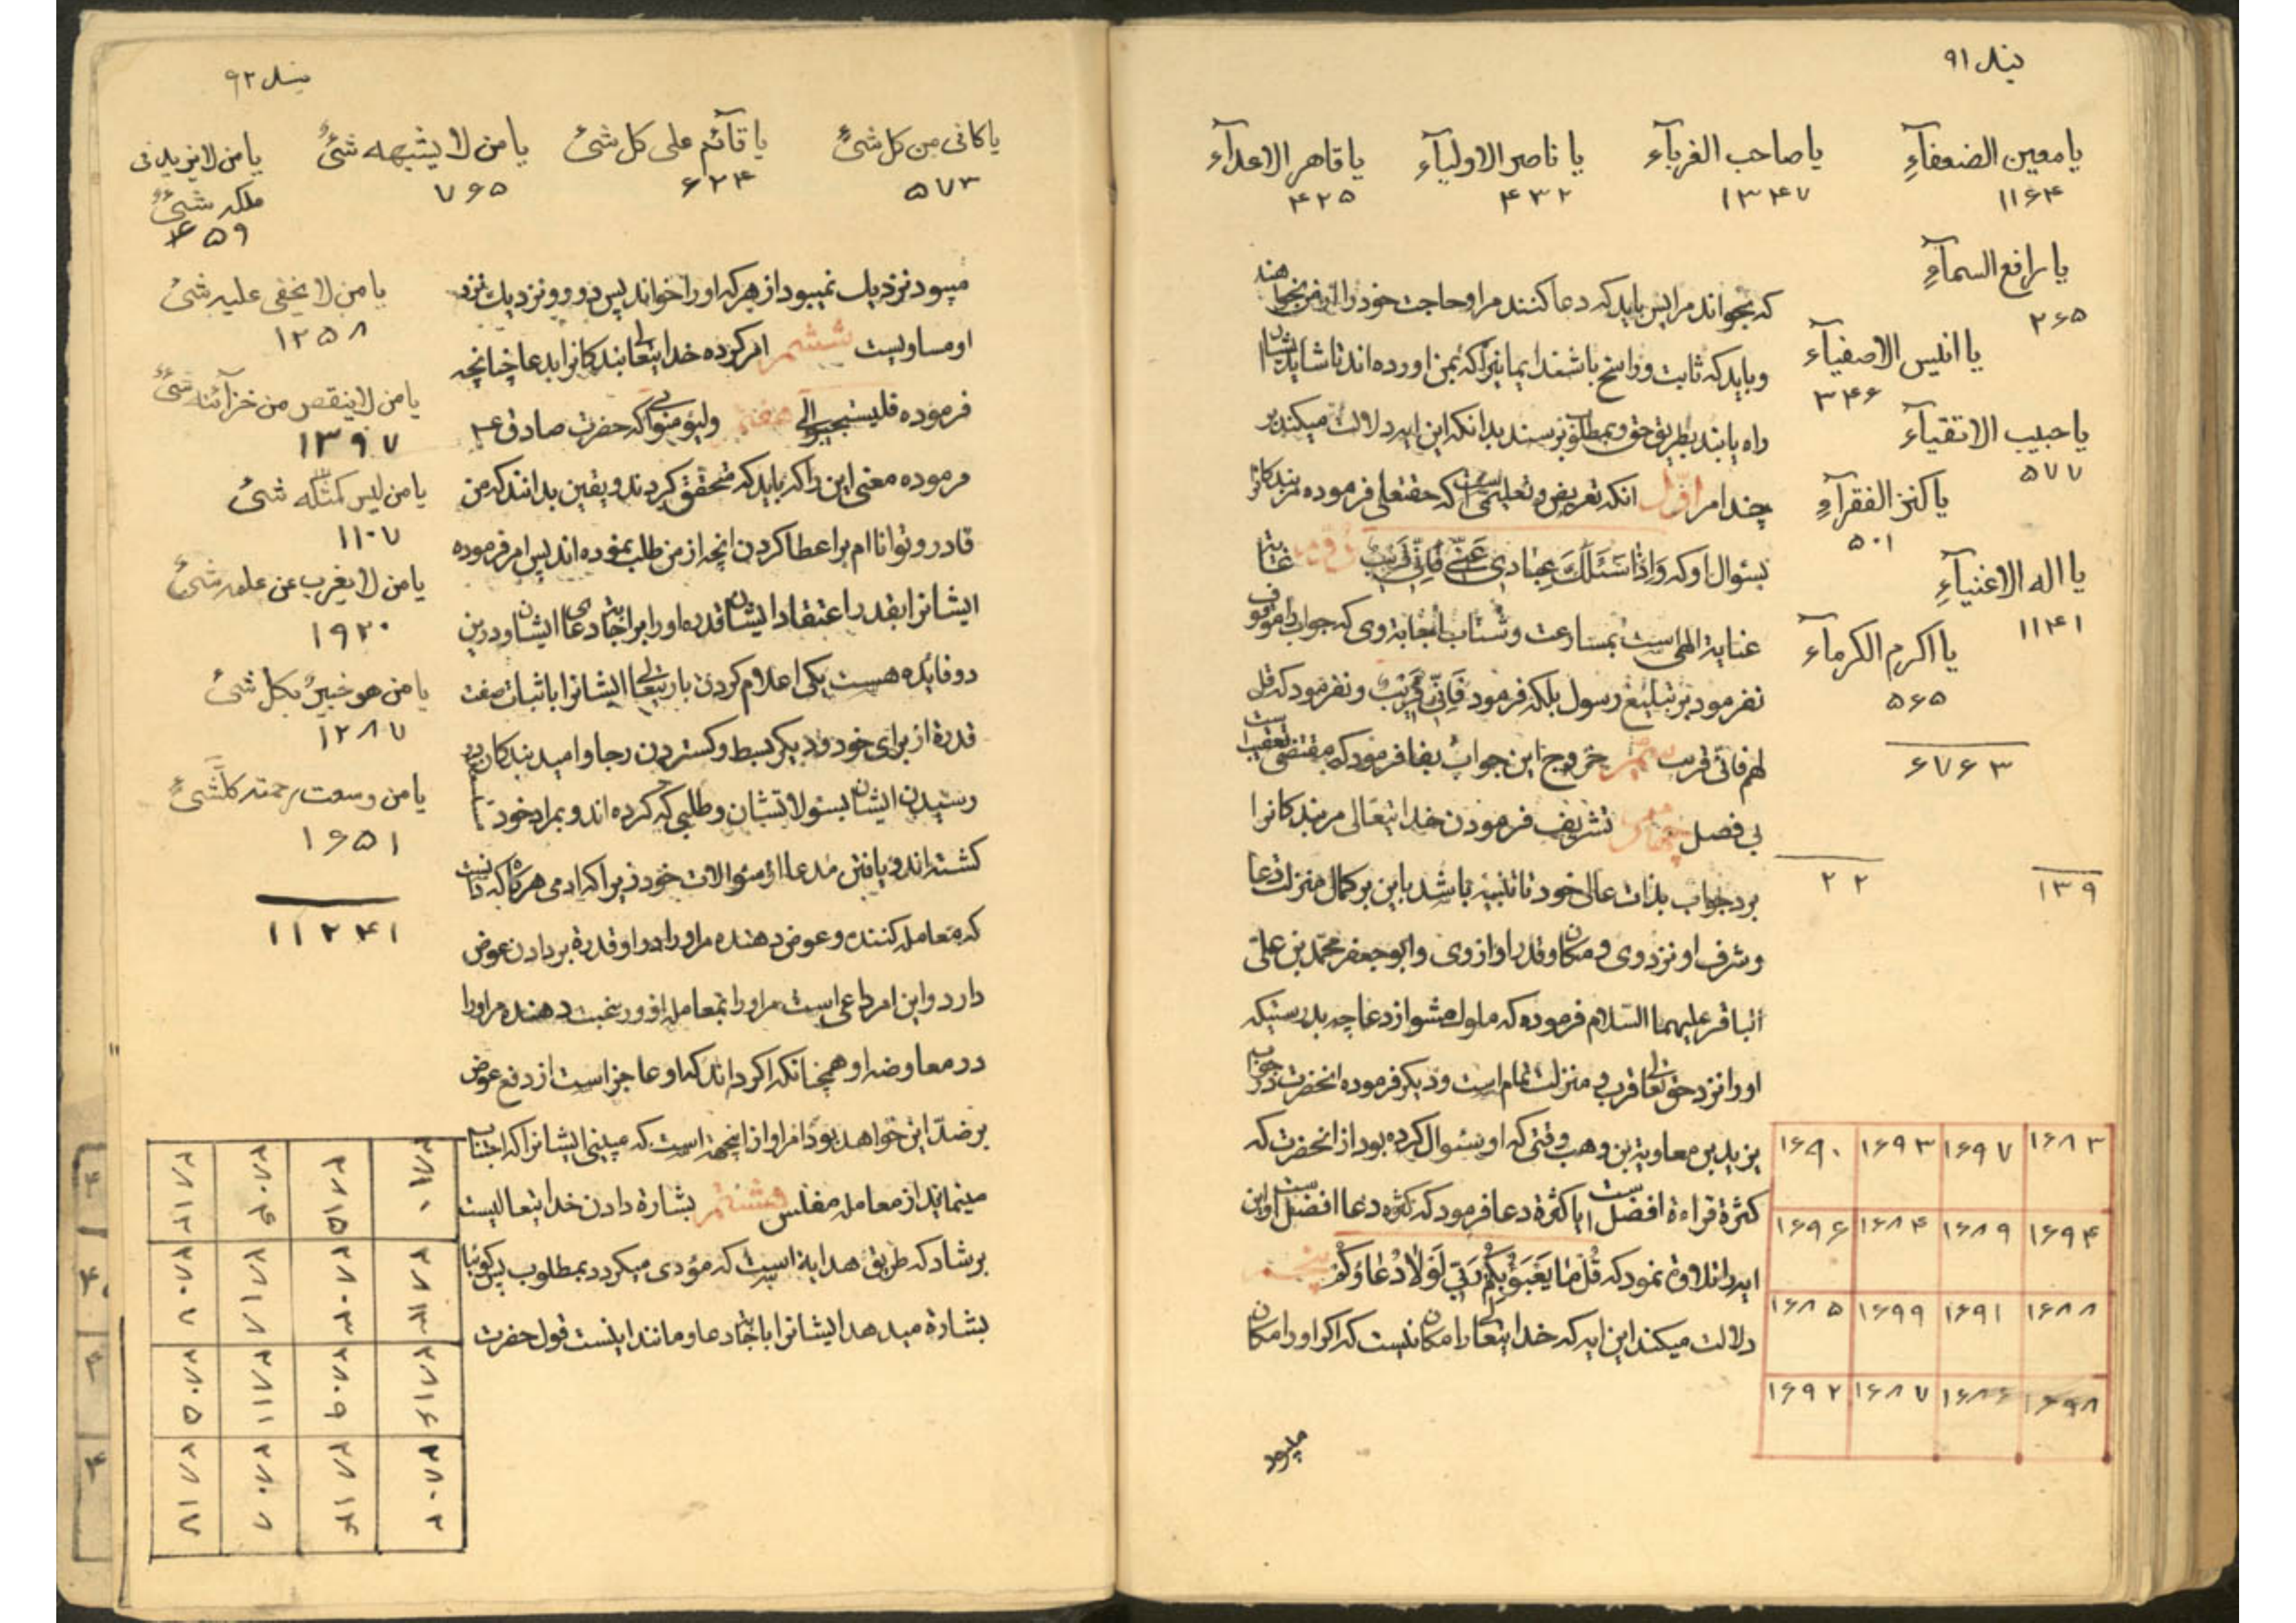 بند ۹۱
یا معین الضعفآءِ یا صاحب الغربآء یا ناصر الاولیآء یا قاهر الاعدآء
۱۱۶۴ ۱۳۴۷ ۴۳۲ ۴۲۵
یا رافع السمآءِ
۲۶۵
یا انیس الاصفیآء
۳۴۶
یا حبیب الاتقیآء
۵۷۷
یا کنز الفقرآءِ
۵۰۱
یا اله الاغنیآءِ
۱۱۴۱
یا اکرم الکرمآء
۵۶۵
۶۷۶۳
۱۳۹ ۲۲
که بخواند مرا پس باید که دعا کنند مرا و حاجت خود را از من بخواهند
و باید که ثابت و راسخ باشند ایمانیرا که بمن اورده اند تا شاید ایشان
راه یابند بطریق حق و بمطلوب برسند بدانکه این ایه دلالت میکند بر
چند امر اوّل انکه تعریض و تعلیمی است که حقتعلی فرموده مر بندکانرا
بسئوال او که وَاِذَا سَئَلَكَ عِبَادِی عَنّی فَاِنّی قَرِیبٌ دویم غایة
عنایة الهی است بمسارعت و شتاب باجابة وی که جواب را موقوف
نفرمود بر تبلیغ رسول بلکه فرمود فَاِنّی قَرِیبٌ و نفرمود که قل
لهم فانّی قریب سیّم خروج این جواب بفا فرمود که مقتضی تعقیب است
بی فصل چهارم تشریف فرمودن خدایتعالی مر بندکانرا
برد جواب بذات عالی خود تا تنبیه باشد باین بر کمال منزلت دعا
و شرف او نزد وی و مکان و قدر او از وی و ابو جعفر محمّد بن علی
الباقر علیهما السّلام فرموده که ملول مشو از دعا چه بدرستیکه
او را نزد حق تعالی قرب و منزلت تمام است و دیکر فرموده انحضرت در جواب
یزید بن معاویة بن وهب وقتی که او سئوال کرده بود از انحضرت که
کثرة قراءة افضل است یا کثرة دعا فرمود که کثرة دعا افضل است و این
ایه را تلاوة نمود که قُل مَا یَعْبَؤُ بِکُمْ رَبّی لَوْلَا دُعَاؤُکُمْ پنجم
دلالت میکند این ایه که خدایتعالی را مکان نیست که اکر او را مکان
۱۶۸۳ ۱۶۹۷ ۱۶۹۳ ۱۶۹۰
۱۶۹۴ ۱۶۸۹ ۱۶۸۴ ۱۶۹۶
۱۶۸۸ ۱۶۹۱ ۱۶۹۹ ۱۶۸۵
۱۶۹۸ ۱۶۸۶ ۱۶۸۷ ۱۶۹۲
میبود
بند ۹۲
یا کافی من کل شیٔ یا قآئم علی کل شیٔ یا من لا یشبهه شیٔ یا من لا یزید فی
ملکه شیٔ
۵۷۳ ۶۲۴ ۷۶۵ ۶۵۹
یا من لا یخفی علیه شیٔ
۱۲۵۸
یا من لا ینقص من خزآئنه شیٔ
۱۳۹۷
یا من لیس کمثله شیٔ
۱۱۰۷
یا من لا یغرب عن علمه شیٔ
۱۹۲۰
یا من هو خبیرٌ بکل شیٔ
۱۲۸۷
یا من وسعت رحمته کلّشیٔ
۱۶۵۱
۱۱۲۴۱
میبود نزدیك نمیبود از هر که او را خواند پس دور و نزدیك نزد
او مساویست ششم امر کرده خدایتعالی بندکانرا بدعا چنانچه
فرموده فلیستجیبوالی هفتم ولیؤمنوابی که حضرت صادق ع
فرموده معنی این را که باید که متحقق کردند و یقین بدانند که من
قادر و توانا ام بر اعطا کردن انچه از من طلب نموده اند پس امر فرموده
ایشانرا بقدر اعتقاد ایشان قدرة او را بر اجابة دعای ایشان و درین
دو فایده هست یکی اعلام کردن باریتعالی ایشانرا باثبات صفت
قدرة از برای خود و دیکر بسط و کستردن رجا و امید بندکان در
رسیدن ایشان بسئولاتشان و طلبی که کرده اند و بمراد خود
کشته اند و یافتن مدعا از سئوالات خود زیرا که ادمی هرکاه که دانست
که معامله کننده و عوض دهنده مر او را در او قدرة بر دادن عوض
دارد و این امر داعی است مر او را بمعامله او و رغبت دهنده مر او را
در معاوضه او همچنانکه اکر داند که او عاجز است از دفع عوض
بر ضدّ این خواهد بود امر او از اینجهة است که میبینی ایشانرا که اجتناب
مینمایند از معامله مفلس هشتم بشارة دادن خدایتعالیست
برشاد که طریق هدایة است که مؤدی میکردد بمطلوب پس کوئیا
بشارة میدهد ایشانرا باجابة دعا و مانند اینست قول حضرت